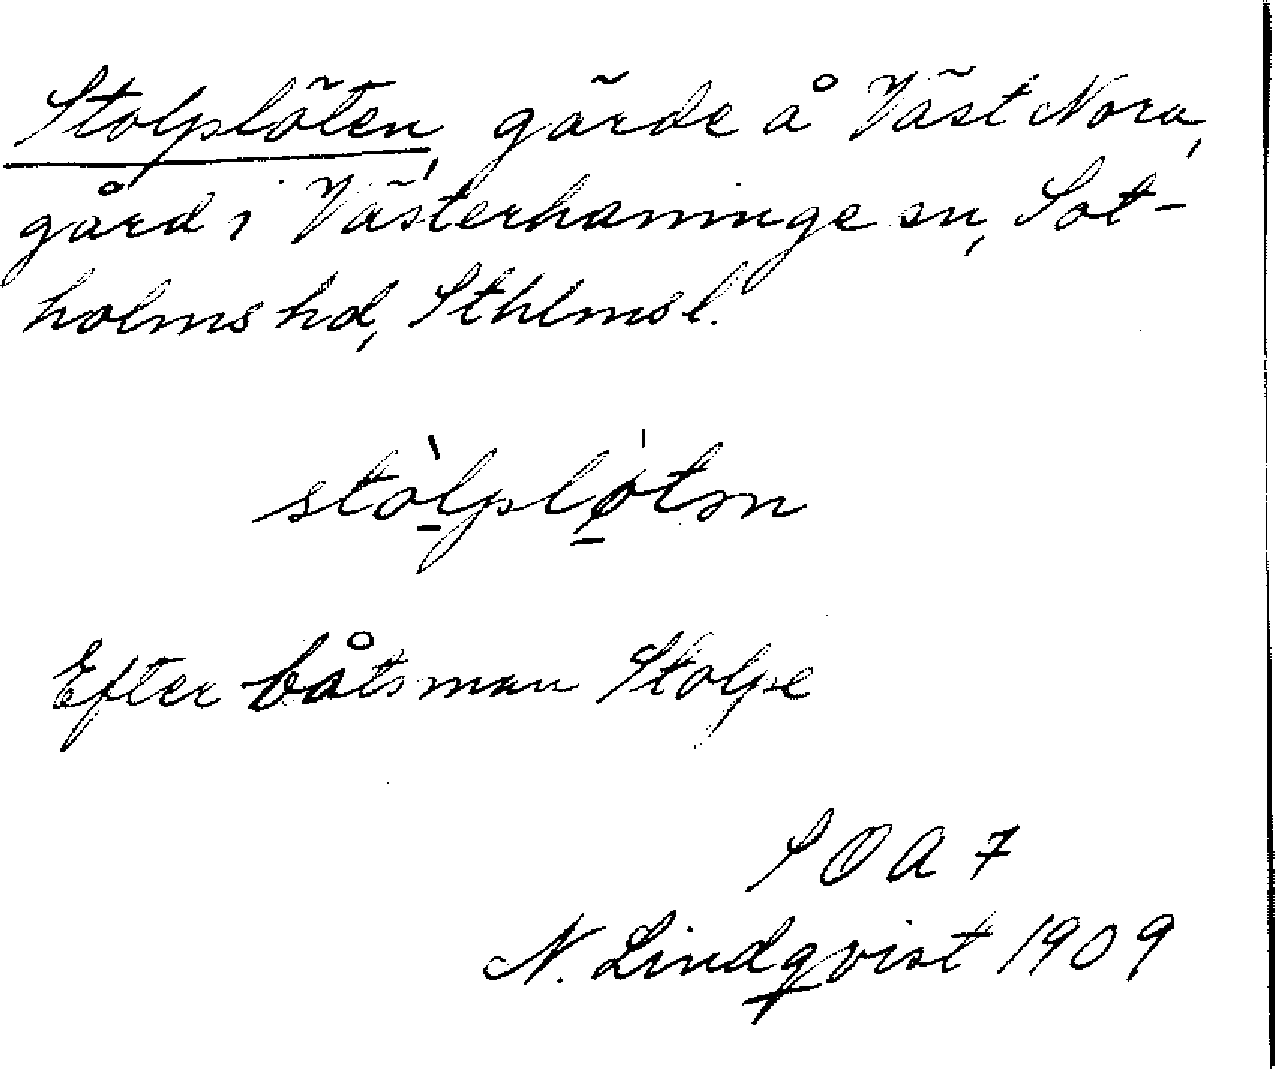 Stolplöten, gärde å Väst Nora,
gård i Västerhaninge sn, Sot-
holms hd, Sthlms l.
stòlpløtṇ
Efter båtsman Stolpe
SOA 7
N. Lindqvist 1909